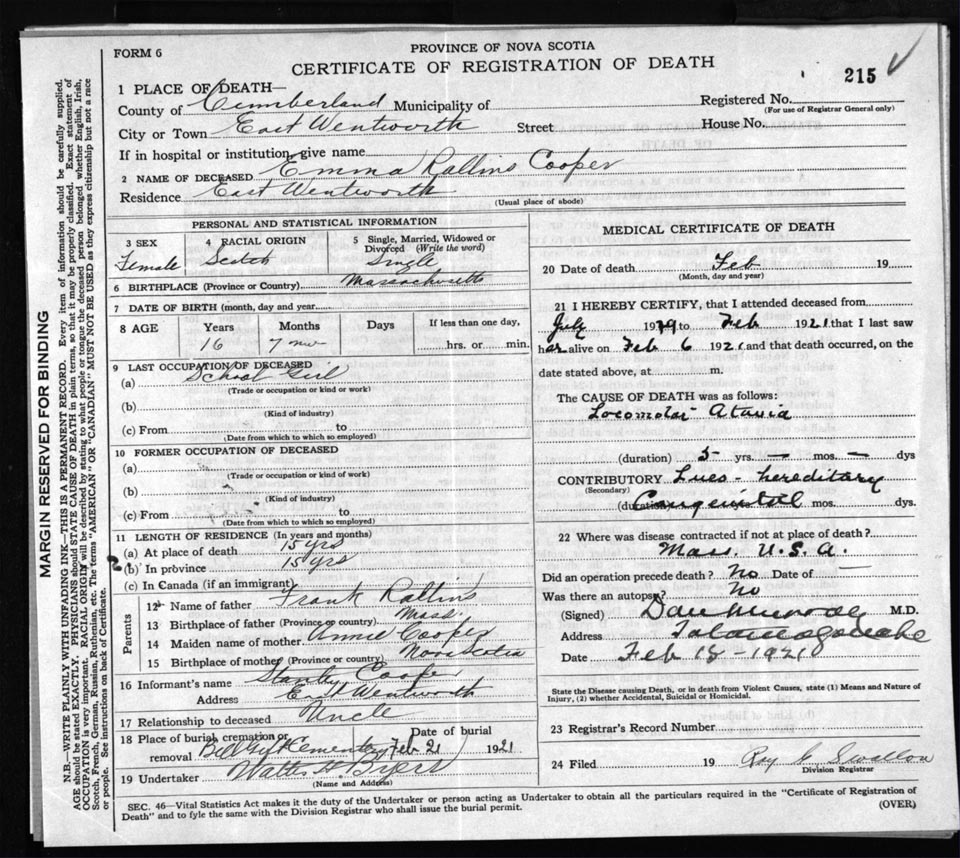 FORM 6
PROVINCE OF NOVA SCOTIA
CERTIFICATE OF REGISTRATION OF DEATH
215
1 PLACE OF DEATH—
County of Cumberland Municipality of
Registered No.
(For use of Registrar General only)
City or Town East Wentworth Street House No.
If in hospital or institution, give name
2 NAME OF DECEASED Emma Rollins Cooper
Residence East Wentworth
(Usual place of abode)
MARGIN RESERVED FOR BINDING
N.B.—WRITE PLAINLY WITH UNFADING INK—THIS IS A PERMANENT RECORD. Every item of information should be carefully supplied.
AGE should be stated EXACTLY. PHYSICIANS should STATE CAUSE OF DEATH in plain terms, so that it may be properly classified. Exact statement of
OCCUPATION is very important. RACIAL ORIGIN will be described by stating to what people or tongue the deceased person belonged whether English, Irish,
Scotch, French, German, Russian, Ruthenian, etc. The terms "AMERICAN" OR "CANADIAN" MUST NOT BE USED as they express citizenship but not a race
or people. See instructions on back of Certificate.
PERSONAL AND STATISTICAL INFORMATION
3 SEX
Female
4 RACIAL ORIGIN
Scotch
5 Single, Married, Widowed or
Divorced (Write the word)
Single
6 BIRTHPLACE (Province or Country) Massachusetts
7 DATE OF BIRTH (month, day and year)
8 AGE Years Months Days If less than one day,
16 7 hrs. or min.
9 LAST OCCUPATION OF DECEASED
(a) School Girl
(Trade or occupation or kind or work)
(b)
(Kind of industry)
(c) From to
(Date from which to which so employed)
10 FORMER OCCUPATION OF DECEASED
(a)
(Trade or occupation or kind of work)
(b)
(Kind of industry)
(c) From to
(Date from which to which so employed)
11 LENGTH OF RESIDENCE (In years and months)
(a) At place of death 15 yrs
(b) In province 15 yrs
(c) In Canada (if an immigrant)
Parents
12 Name of father Frank Rollins
13 Birthplace of father (Province or country) Mass.
14 Maiden name of mother Annie Cooper
15 Birthplace of mother (Province or country) Nova Scotia
16 Informant's name Stanley Cooper
Address East Wentworth
17 Relationship to deceased Uncle
18 Place of burial cremation or Date of burial
removal Cemetery Feb 21 1921
19 Undertaker Walter Byers
(Name and Address)
MEDICAL CERTIFICATE OF DEATH
20 Date of death Feb 19
(Month, day and year)
21 I HEREBY CERTIFY, that I attended deceased from
July 1919 to Feb 1921 that I last saw
her alive on Feb 6 1921 and that death occurred, on the
date stated above, at m.
The CAUSE OF DEATH was as follows:
Locomotor Ataxia
(duration) 5 yrs. — mos. — dys
CONTRIBUTORY Lues - hereditary
(Secondary)
(duration) Congenital mos. dys.
22 Where was disease contracted if not at place of death?
Mass. U.S.A.
Did an operation precede death? No Date of —
Was there an autopsy? No
(Signed) Dan Murray M.D.
Address Tatamagouche
Date Feb 18 - 1921
State the Disease causing Death, or in death from Violent Causes, state (1) Means and Nature of
Injury, (2) whether Accidental, Suicidal or Homicidal.
23 Registrar's Record Number
24 Filed 19 Roy Swallow
Division Registrar
SEC. 46—Vital Statistics Act makes it the duty of the Undertaker or person acting as Undertaker to obtain all the particulars required in the "Certificate of Registration of
Death" and to fyle the same with the Division Registrar who shall issue the burial permit.
(OVER)